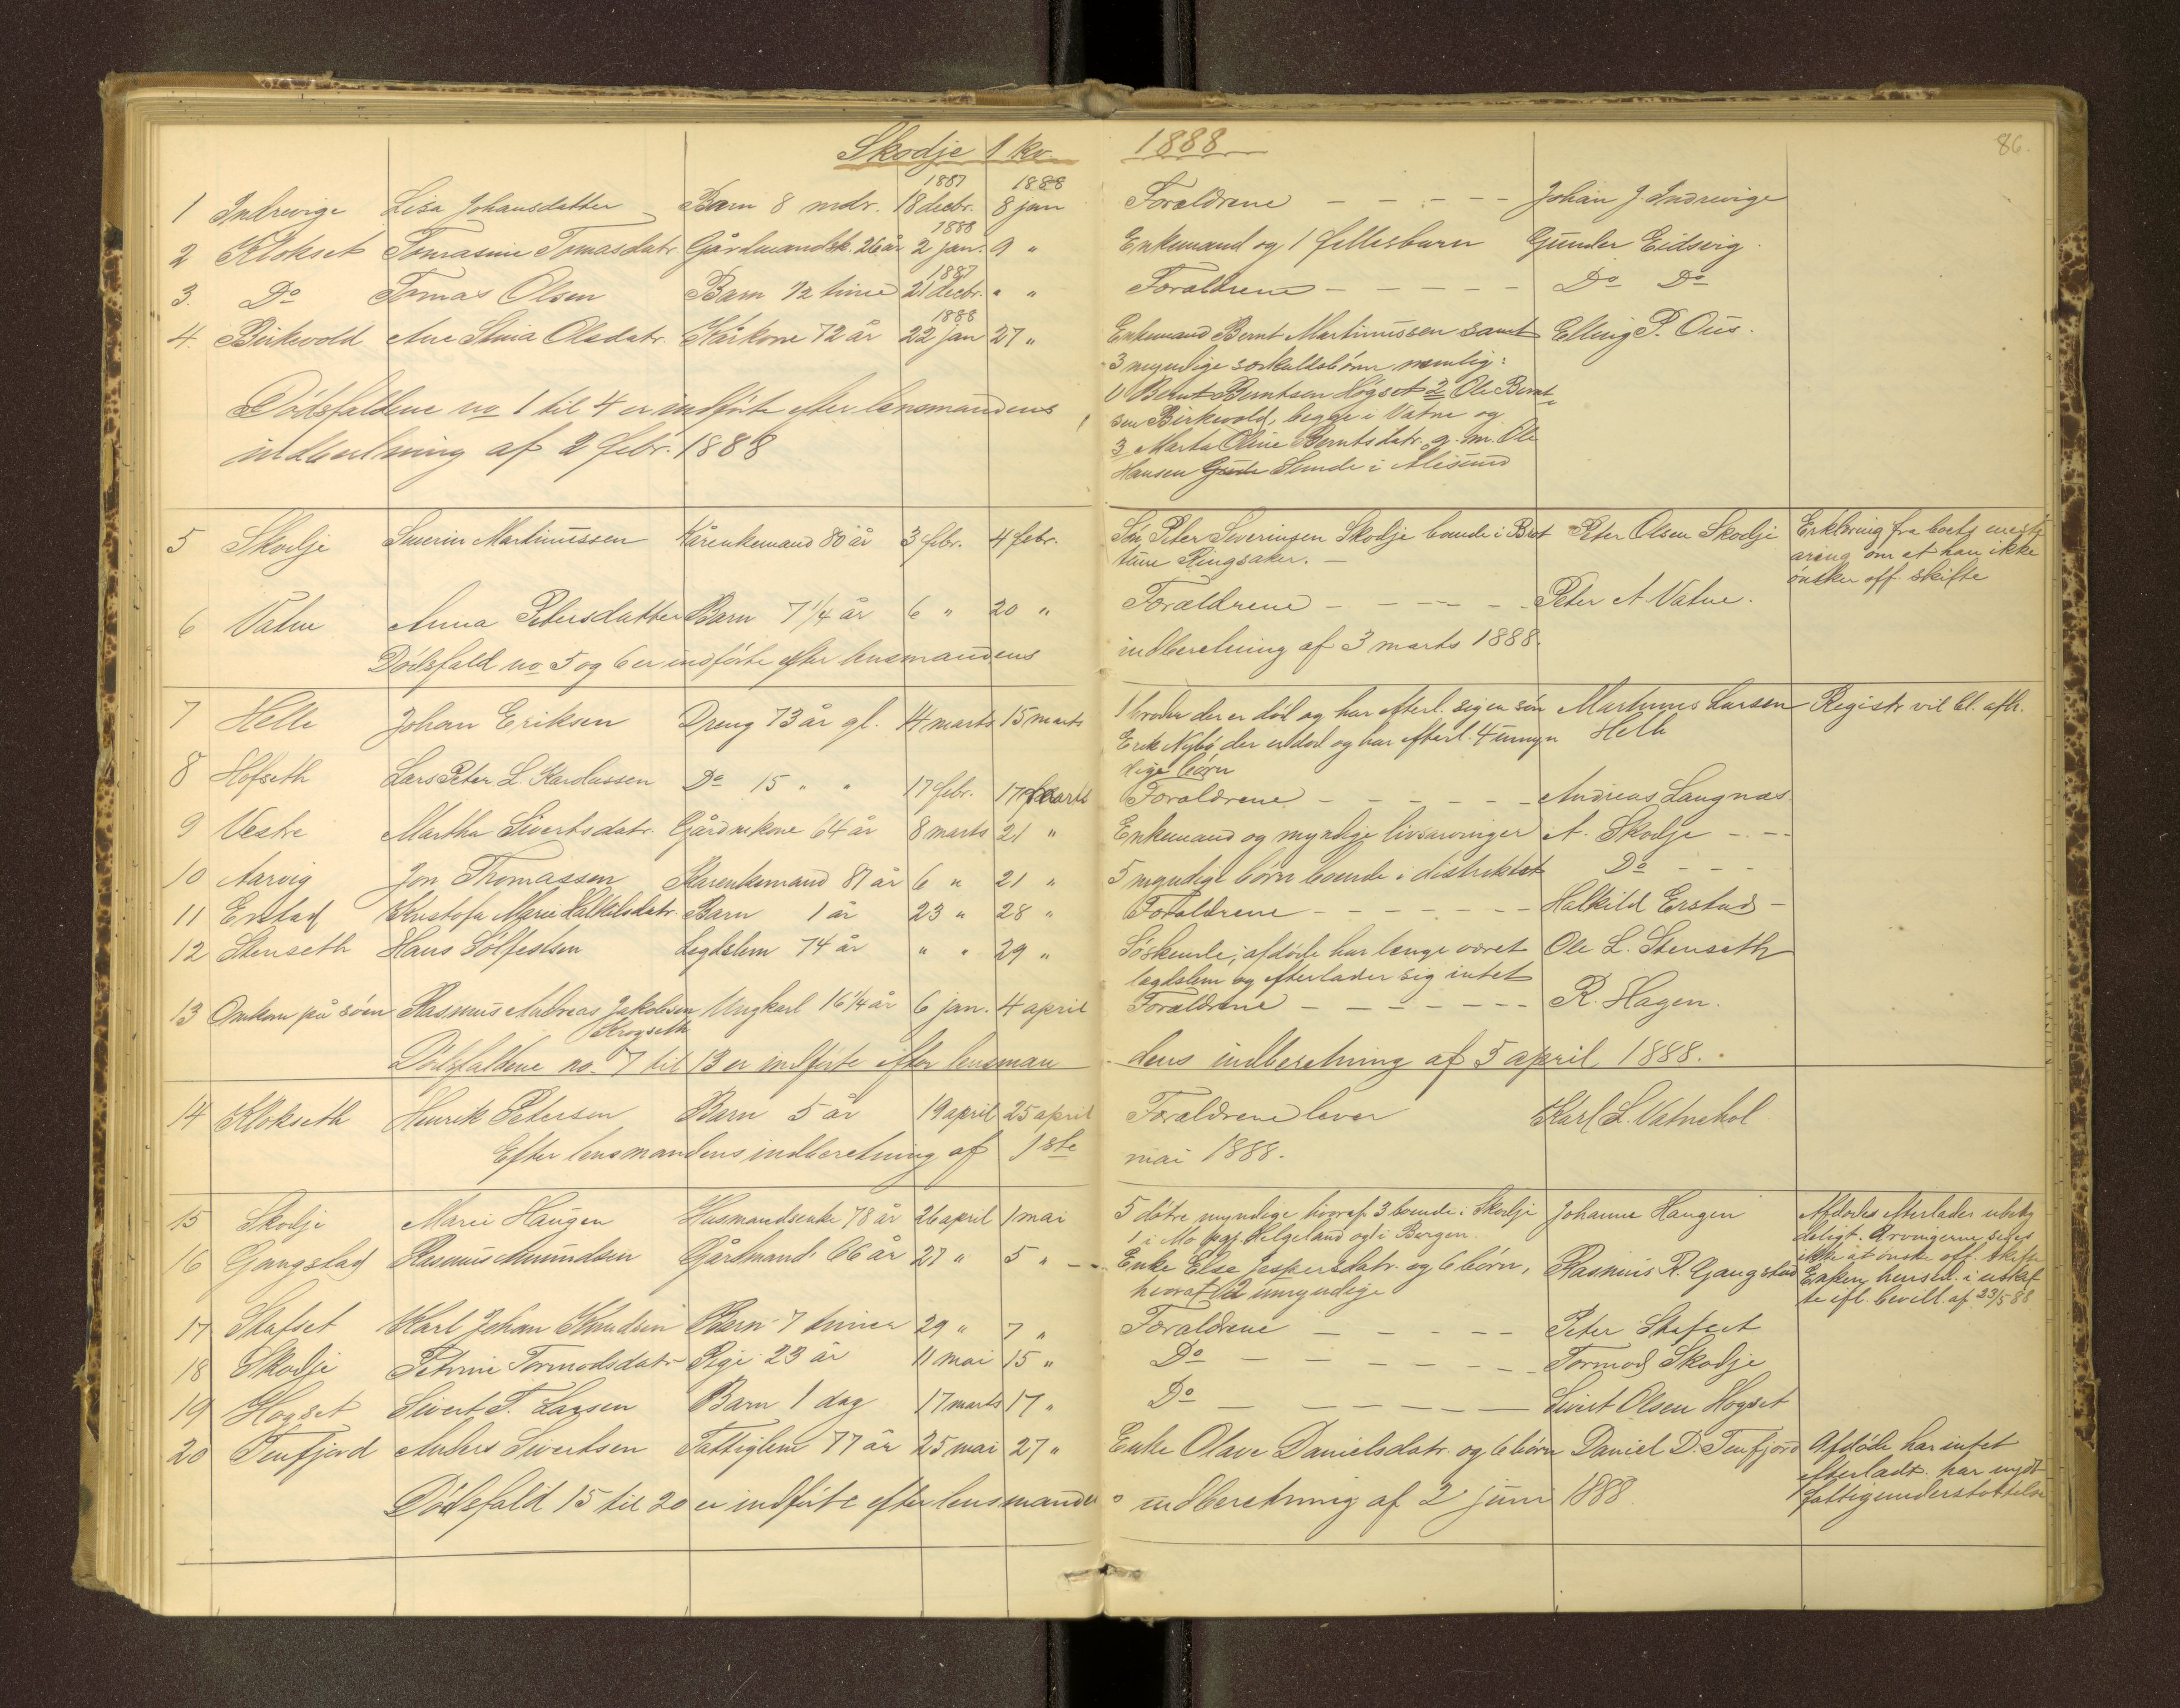 Skodje 1 kv. 1888
86.
1887 1888
1 Indrevige Lisa Johansdatter Barn 8 mdr. 18 decbr. 8 jan Foraldrene Johan J. Indrevige
1888
2 Klokset Tomasine Tomasdatr. Gårdmandsk. 26 år 2 jan. 9 " Enkemand og 1 fellesbarn Gunder Eidsvig.
1887
3. Do Tomas Olsen Barn 1/2 time 21 decbr. " " Foraldrene Do Do
1888
4. Birkevold Ane Stina Olsdatr. Kårkone 72 år 22 jan 27 " Enkemand Bernt Martinussen samt Elling P. Ous.
3 myndige særkuldsbörn nemlig:
1) Bernt Berntsen Högset 2 Ole Bernt-
Dödsfaldene no 1 til 4 er indförte efter lensmandens sen Birkevold, begge i Vatne og
3 Marta Oline Berntsdatr. g. m. Ole
indberetning af 2 febr. 1888
Hansen Sunde i Alesund
5 Skodje Severin Martinussen Kårenkemand 80 år 3 febr. 4 febr. Sön Peter Severinsen Skodje boende i Brot Peter Olsen Skodje Erklæring fra boets enest
tume Ringsaker. arving om at han ikke
önsker off. skifte
6 Vatne Anna Petersdatter Barn 7 1/4 år 6 " 20 " Foraldrene Peter A. Vatne.
Dödsfald no 5 og 6 er indförte efter lensmandens indberetning af 3 marts 1888.
7 Helle Johan Eriksen Dreng 73 år gl. 14 marts 15 marts 1 broder der er död og har efterl. sig en sön Martinus Larsen Registr. vil bl. afh.
Erik Nybö, der er död og har efterl. 4 umyn Helle
dige börn
8 Hofseth Lars Peter L. Karolussen Do 15 " " 17 febr. 17 marts Foraldrene Andreas Langnas
9 Vestre Martha Sivertsdatr. Gårdmkone 64 år 8 marts 21 " Enkemand og myndige livsarvinger A. Skodje
10 Aarvig Jon Thomassen Karenkemand 87 år 6 " 21 " 5 myndige börn boende i distriktet Do
11 Erstad Kristofa Marie Halkildsdatr. Barn 1 år 23 " 28 " Foraldrene Halkild Erstad
12 Stenseth Hans Solfestsen Legdslem 74 år " " 29 " Söskende; afdöde har længe været Ole L. Stenseth
lægdslem og efterlader sig intet
13 Omkom på söen Rasmus Andreas Jakobsen Ungkarl 16 1/4 år 6 jan. 4 april Foraldrene R. Hagen.
Krogseth
Dödsfaldene no. 7 til 13 er indförte efter lensman dens indberetning af 5 april 1888.
14 Klokseth Henrik Petersen Barn 5 år 19 april 25 april Foraldrene lever Karl L. Vatnehol
Efter lensmandens indberetning af 1ste mai 1888.
15 Skodje Marie Haugen Husmandsenke 78 år 26 april 1 mai 5 dötre myndige hvoraf 3 boende i Skodje Johanne Haugen Afdödes efterlader ubety
1 i Mo pgj. Helgeland og 1 i Bergen. deligt. Arvingerne siges
ikke at önske off. skifte
16 Gangstad Rasmus Amundsen Gårdmand 66 år 27 " 5 " Enke Else Jespersdatr. og 6 börn, Rasmus R. Gangstad Enken hensid. i uskif
hvoraf 2 umyndige te efl. bevill. af 23/5 88
17 Stafset Karl Johan Knudsen Barn 7 timer 29 " 7 " Foraldrene Peter Stafset
18 Skodje Petrine Tormodsdatr. Pige 23 år 11 mai 15 " Do Tormod Skodje
19 Hogset Sivert T. Larsen Barn 1 dag 17 marts 17 " Do Sivert Olsen Hogset
20 Tenfjord Anders Sivertsen Fattiglem 77 år 25 mai 27 " Enke Olave Danielsdatr. og 6 börn Daniel D. Tenfjord Afdöde har intet
efterladt. har nydt
Dödsfald 15 til 20 er indförte efter lensmandens indberetning af 2 juni 1888. fattigunderstöttelse